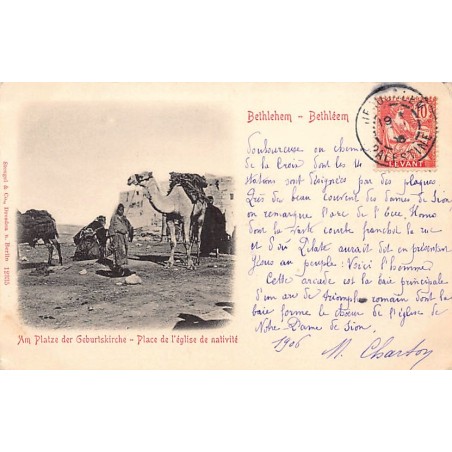 Bethlehem – Bethléem
JERUSALEM
PALESTINE
19
10
LEVANT
Douloureuse ou chemin
de la Croix dont les 14
stations sont désignées par des plaques
Près du beau couvent des Dames de Sion
on remarque l'arc de l'Ecce Homo
dont la vaste courbe franchit la rue
et d'où Pilate aurait dit en présentant
Jésus au peuple : Voici l'homme
Cette arcade est la baie principale
d'un arc de triomphe romain dont la
baie forme le chœur de l'église de
Notre Dame de Sion.
1906 M. Charton
Am Platze der Geburtskirche – Place de l'église de nativité
Stengel & Co., Dresden u. Berlin 12935